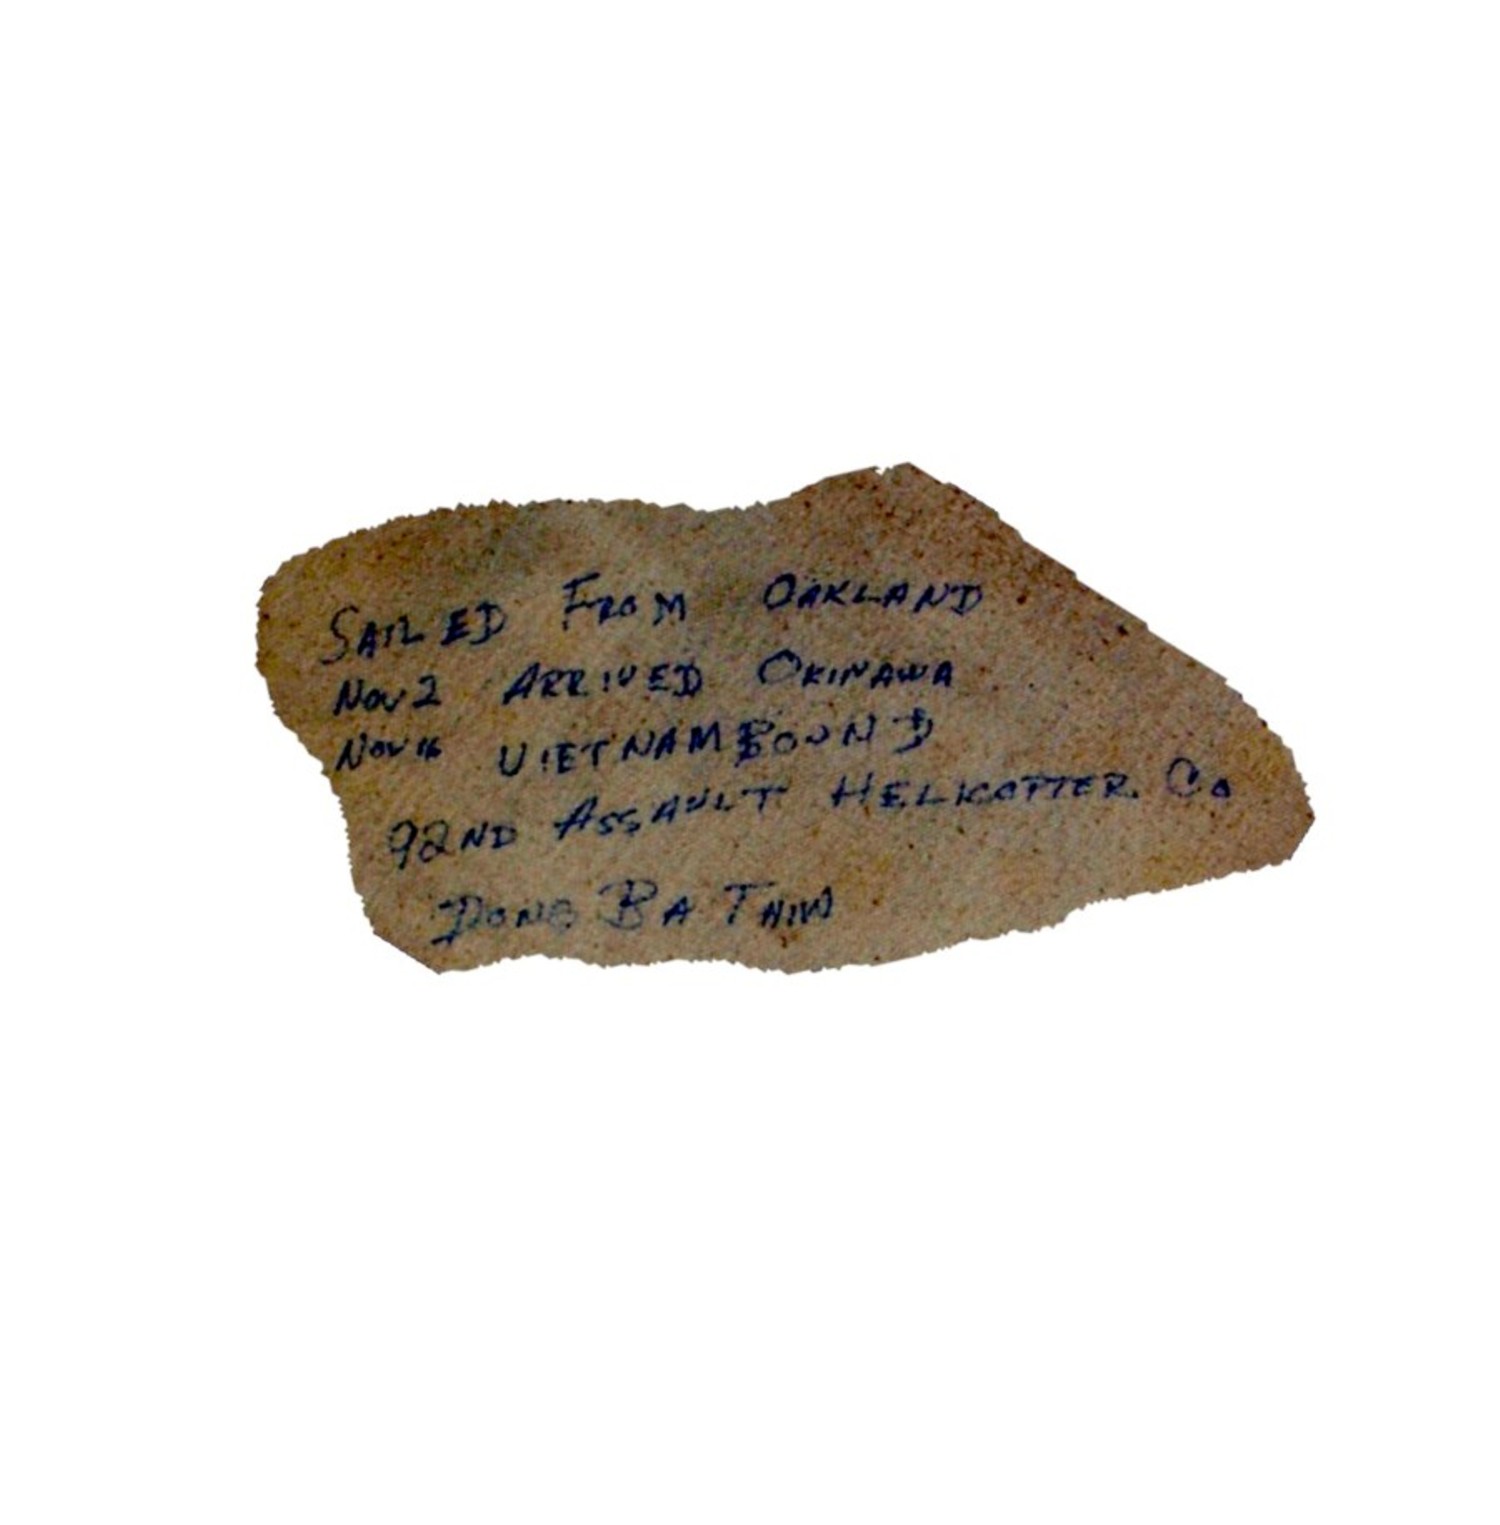 SAILED FROM OAKLAND
NOV 2 ARRIVED OKINAWA
NOV 16 VIETNAM BOUND
92ND ASSAULT HELICOPTER Co
DONG BA THIN